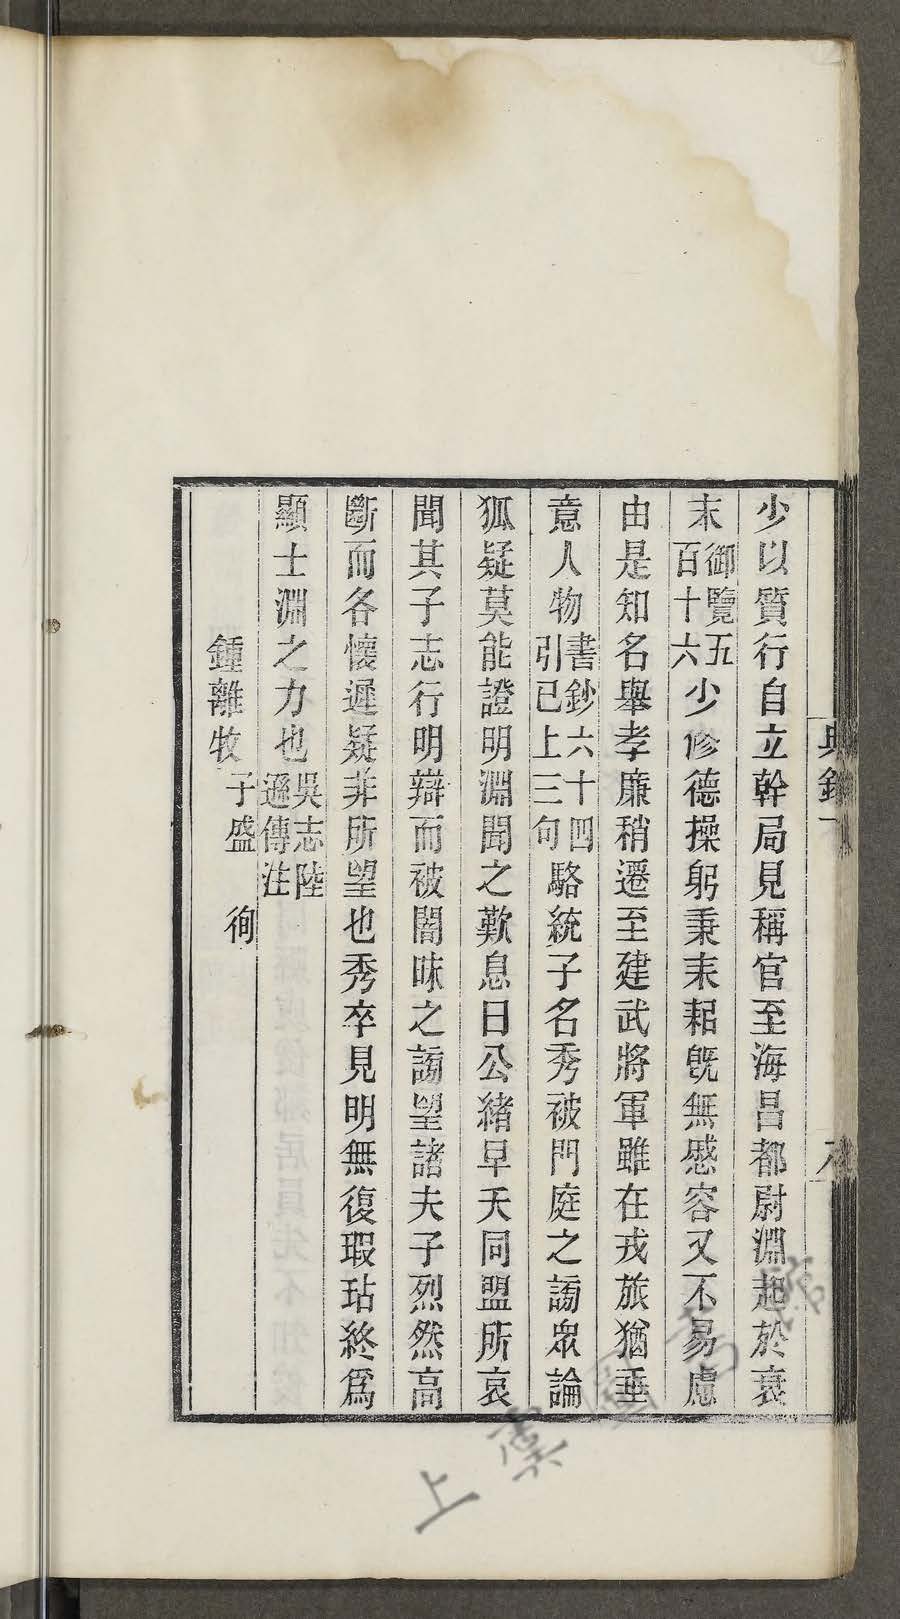 少以質行自立幹局見稱官至海昌都尉淵起於衰
末御覽五百十六少修德操躬秉耒耜既無慼容又不易慮
由是知名舉孝廉稍遷至建武將軍雖在戎旅猶垂
意人物書鈔六十四引已上三句駱統子名秀被門庭之謗眾論
狐疑莫能證明淵聞之歎息曰公緒早夭同盟所哀
聞其子志行明辯而被闇昧之謗望諸夫子烈然高
斷而各懷遲疑非所望也秀卒見明無復瑕玷終爲
顯士淵之力也吳志陸遜傳注
鍾離牧子盛 徇
上虞圖書館